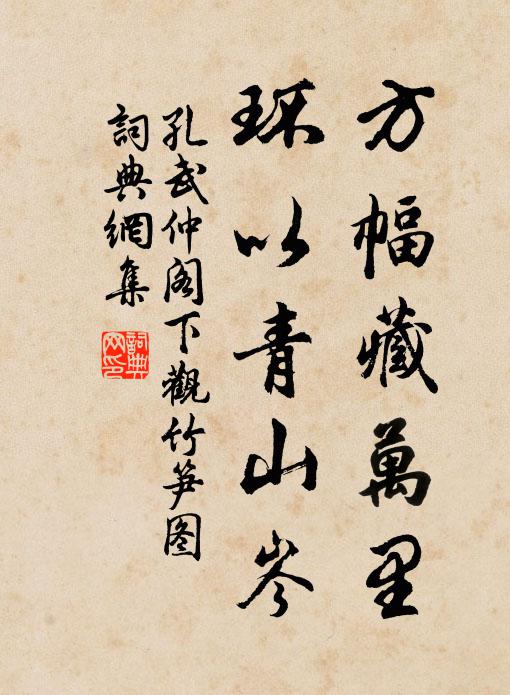 方幅藏萬里
环以青山岑
孔武仲阁下觀竹笋图
詞典網集
詞典
网印